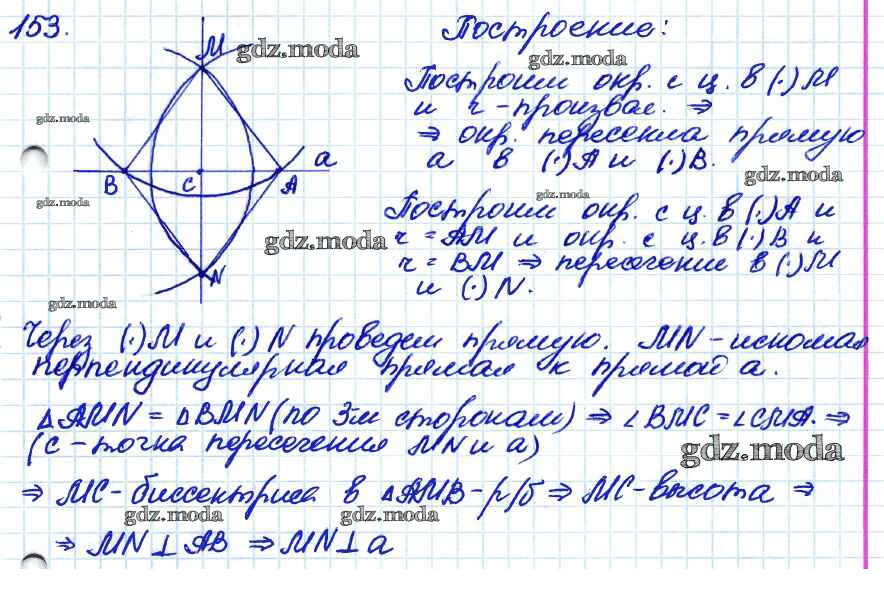 153.
Построение:
M
gdz.moda
gdz.moda
Построим окр. с ц. в (·) M
и r - произвол. ⇒
gdz.moda
⇒ окр. пересекла прямую
a в (·) A и (·) B.
a
B
C
A
gdz.moda
gdz.moda
gdz.moda
Построим окр. с ц. в (·) A и
r = AM и окр. с ц. в (·) B и
gdz.moda
r = BM ⇒ пересечение в (·) M
и (·) N.
N
gdz.moda
Через (·) M и (·) N проведем прямую. MN - искомая
перпендикулярная прямая к прямой a.
△AMN = △BMN (по 3-м сторонам) ⇒ ∠BMC = ∠CMA. ⇒
(C - точка пересечения MN и a)
gdz.moda
⇒ MC - биссектриса в △AMB - р/б ⇒ MC - высота ⇒
gdz.moda
gdz.moda
⇒ MN ⊥ AB ⇒ MN ⊥ a